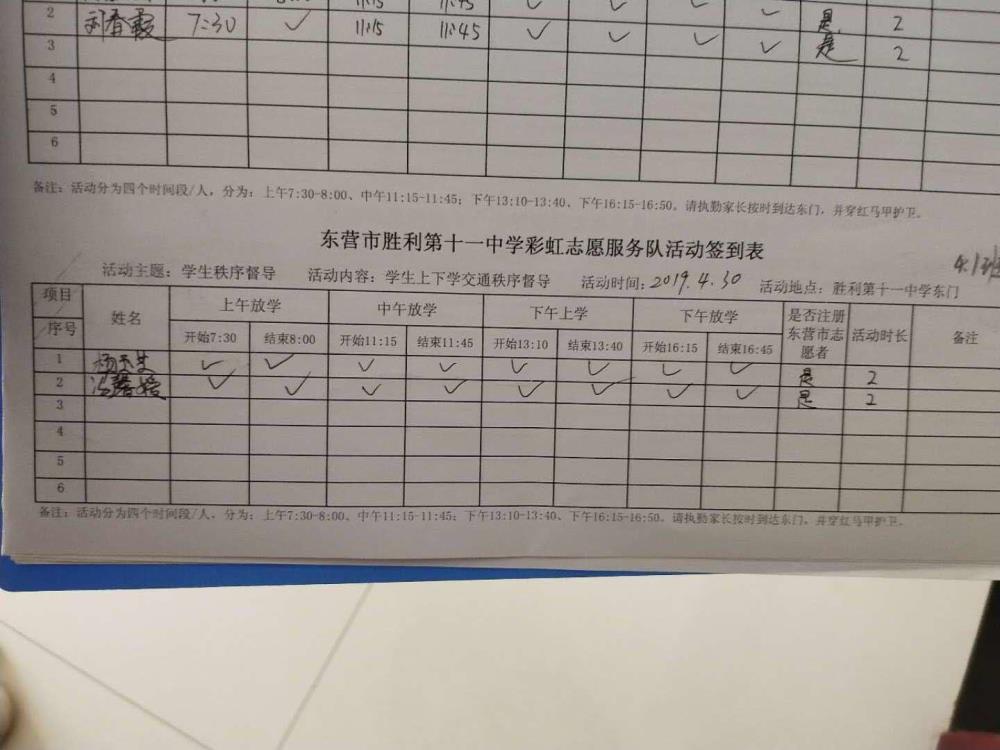 2 刘春霞 7:30 ✓ 11:15 11:45 ✓ ✓ ✓ ✓ 是 2
3 是 2
4
5
6
备注：活动分为四个时间段/人，分为：上午7:30-8:00、中午11:15-11:45；下午13:10-13:40、下午16:15-16:50。请执勤家长按时到达东门，并穿红马甲护卫。
东营市胜利第十一中学彩虹志愿服务队活动签到表
4.1班
活动主题：学生秩序督导 活动内容：学生上下学交通秩序督导 活动时间：2019.4.30 活动地点：胜利第十一中学东门
项目 序号 姓名 上午放学 中午放学 下午上学 下午放学 是否注册东营市志愿者 活动时长 备注
开始7:30 结束8:00 开始11:15 结束11:45 开始13:10 结束13:40 开始16:15 结束16:45
1 ✓ ✓ ✓ ✓ ✓ ✓ ✓ ✓ 是 2
2 ✓ ✓ ✓ ✓ ✓ ✓ ✓ ✓ 是 2
3
4
5
6
备注：活动分为四个时间段/人，分为：上午7:30-8:00、中午11:15-11:45；下午13:10-13:40、下午16:15-16:50。请执勤家长按时到达东门，并穿红马甲护卫。